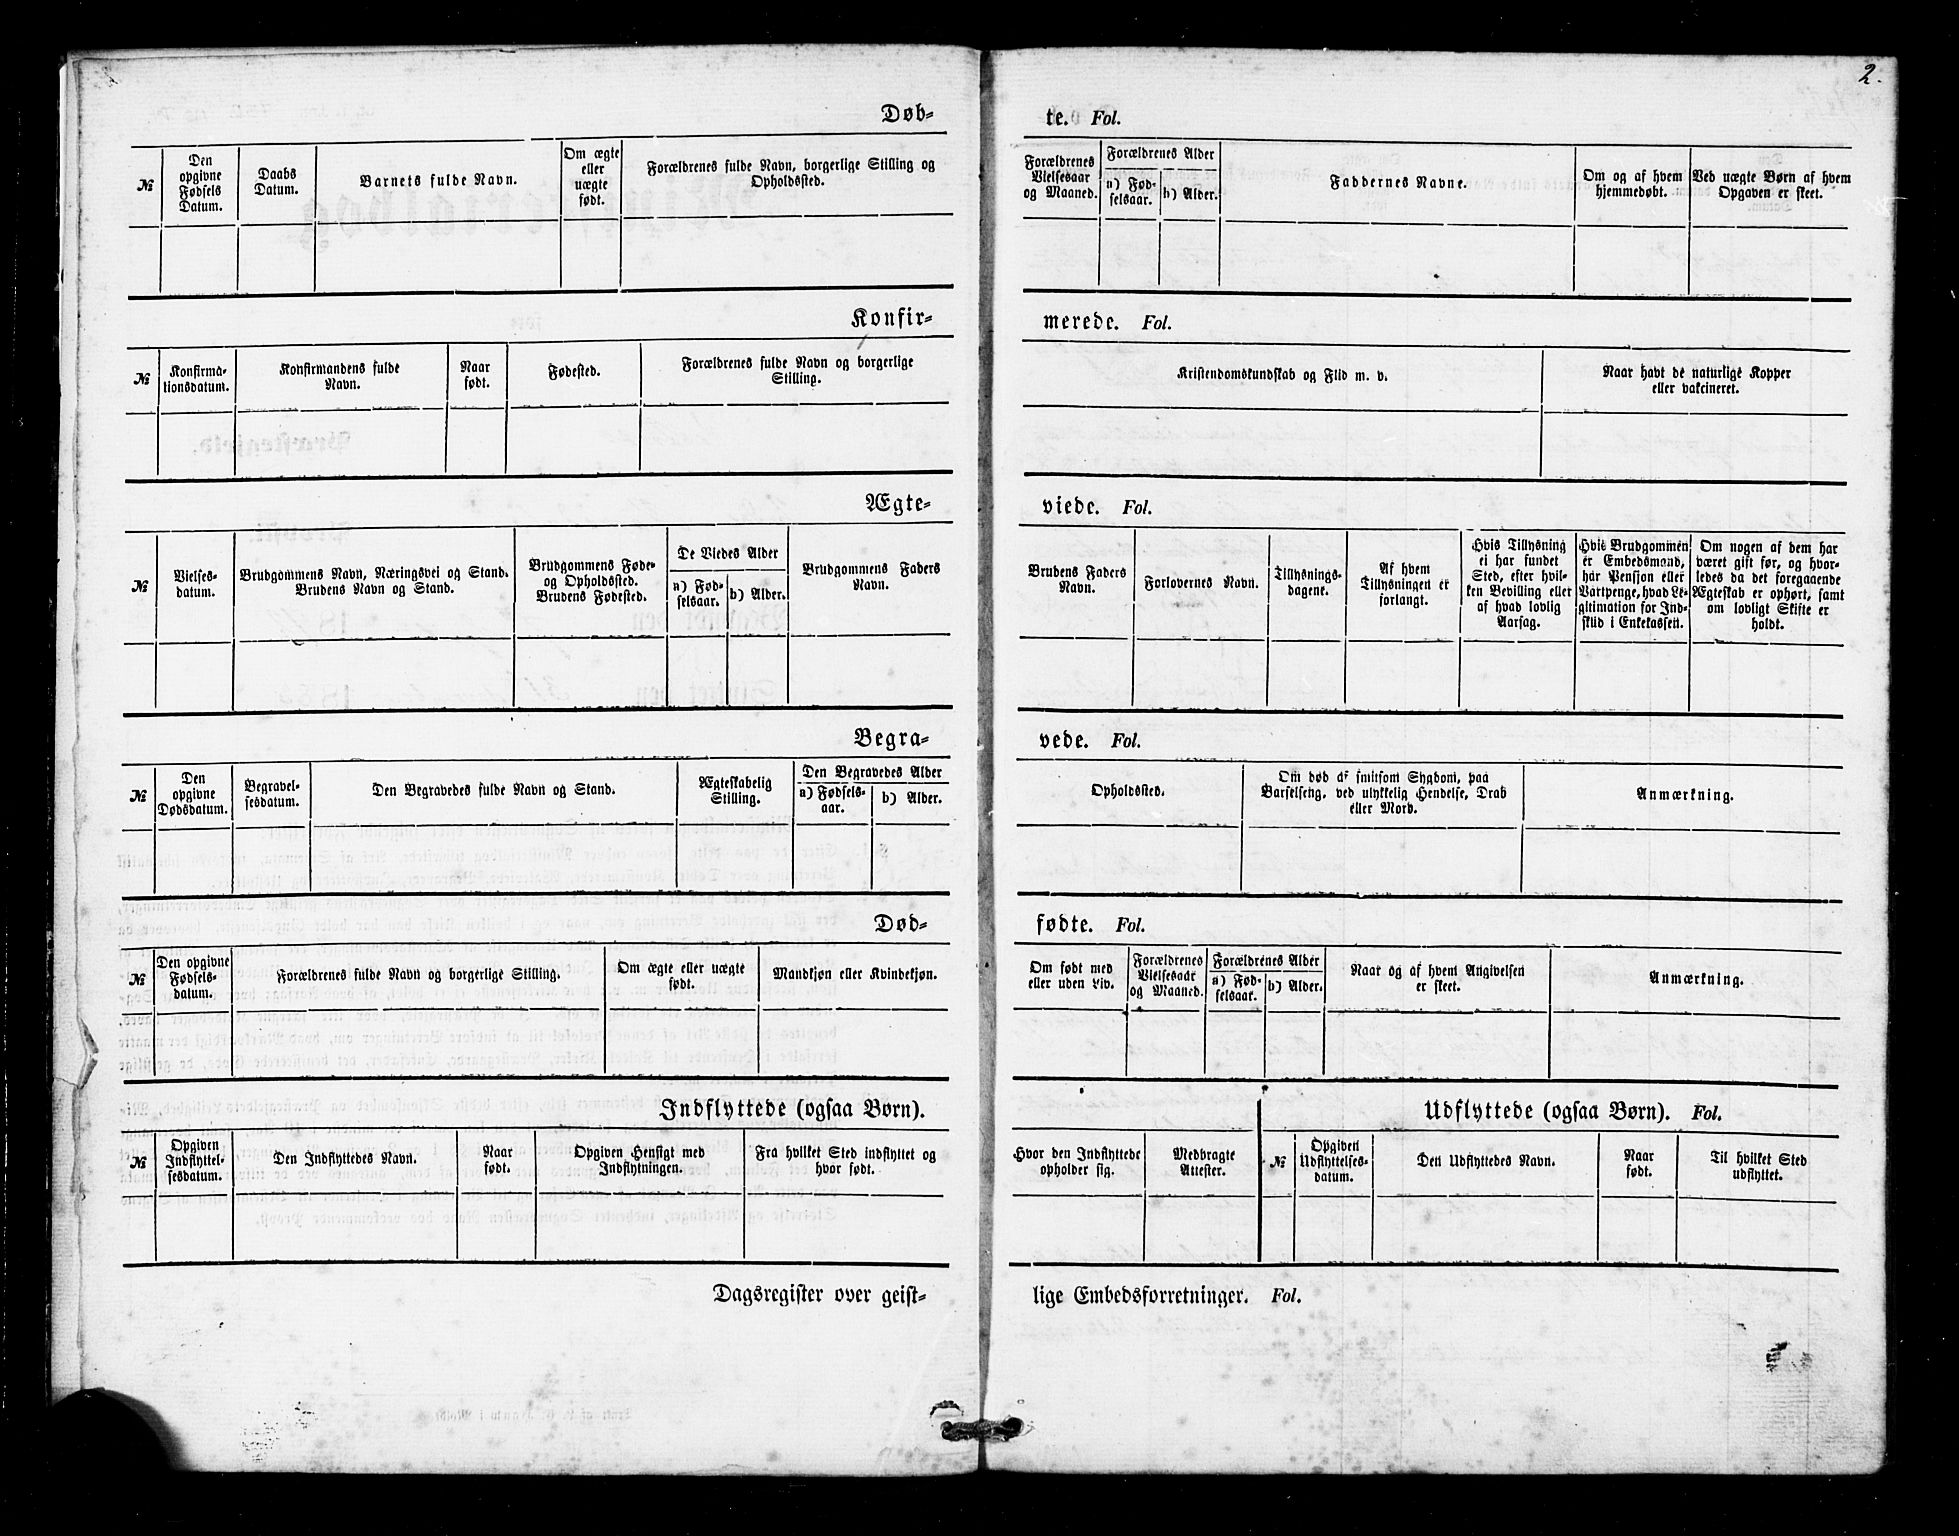 2.
Døb-
№
Den
opgivne
Fødsels
Datum.
Daabs
Datum.
Barnets fulde Navn.
Om ægte
eller
uægte
født.
Forældrenes fulde Navn, borgerlige Stilling og
Opholdssted.
te. Fol.
Forældrenes
Vielsesaar
og Maaned.
Forældrenes Alder
a) Fød-
selsaar.
b) Alder.
Faddernes Navne.
Om og af hvem
hjemmedøbt.
Ved uægte Børn af hvem
Opgaven er skeet.
Konfir-
№
Konfirma-
tionsdatum.
Konfirmandens fulde
Navn.
Naar
født.
Fødested.
Forældrenes fulde Navn og borgerlige
Stilling.
merede. Fol.
Kristendomskundskab og Flid m. v.
Naar havt de naturlige Kopper
eller vakcineret.
Ægte-
№
Vielses-
datum.
Brudgommens Navn, Næringsvei og Stand.
Brudens Navn og Stand.
Brudgommens Føde-
og Opholdssted.
Brudens Fødested.
De Viedes Alder
a) Fød-
selsaar.
b) Alder.
Brudgommens Faders
Navn.
viede. Fol.
Brudens Faders
Navn.
Forlovernes Navn.
Tillysnings-
dagene.
Af hvem
Tillysningen er
forlangt.
Hvis Tillysning
ei har fundet
Sted, efter hvil-
ken Bevilling eller
af hvad lovlig
Aarsag.
Hvis Brudgommen
er Embedsmand,
har Pension eller
Vartpenge, hvad Le-
gitimation for Ind-
skud i Enkekassen.
Om nogen af dem har
været gift før, og hvor-
ledes da det foregaaende
Ægteskab er ophørt, samt
om lovligt Skifte er
holdt.
Begra-
№
Den
opgivne
Dødsdatum.
Begravel-
sesdatum.
Den Begravedes fulde Navn og Stand.
Ægteskabelig
Stilling.
Den Begravedes Alder
a) Fødsels-
aar.
b) Alder.
vede. Fol.
Opholdssted.
Om død af smitsom Sygdom, paa
Barselseng, ved ulykkelig Hendelse, Drab
eller Mord.
Anmærkning.
Død-
№
Den opgivne
Fødsels-
datum.
Forældrenes fulde Navn og borgerlige Stilling.
Om ægte eller uægte
født.
Mandkjøn eller Kvindekjøn.
fødte. Fol.
Om født med
eller uden Liv.
Forældrenes
Vielsesaar
og Maaned.
Forældrenes Alder
a) Fød-
selsaar.
b) Alder.
Naar og af hvem Angivelsen
er skeet.
Anmærkning.
Indflyttede (ogsaa Børn).
№
Opgiven
Indflyttel-
sesdatum.
Den Indflyttedes Navn.
Naar
født.
Opgiven Hensigt med
Indflytningen.
Fra hvilket Sted indflyttet og
hvor født.
Hvor den Indflyttede
opholder sig.
Medbragte
Attester.
Udflyttede (ogsaa Børn). Fol.
№
Opgiven
Udflyttelses-
datum.
Den Udflyttedes Navn.
Naar
født.
Til hvilket Sted
udflyttet.
Dagsregister over geist-
lige Embedsforretninger. Fol.